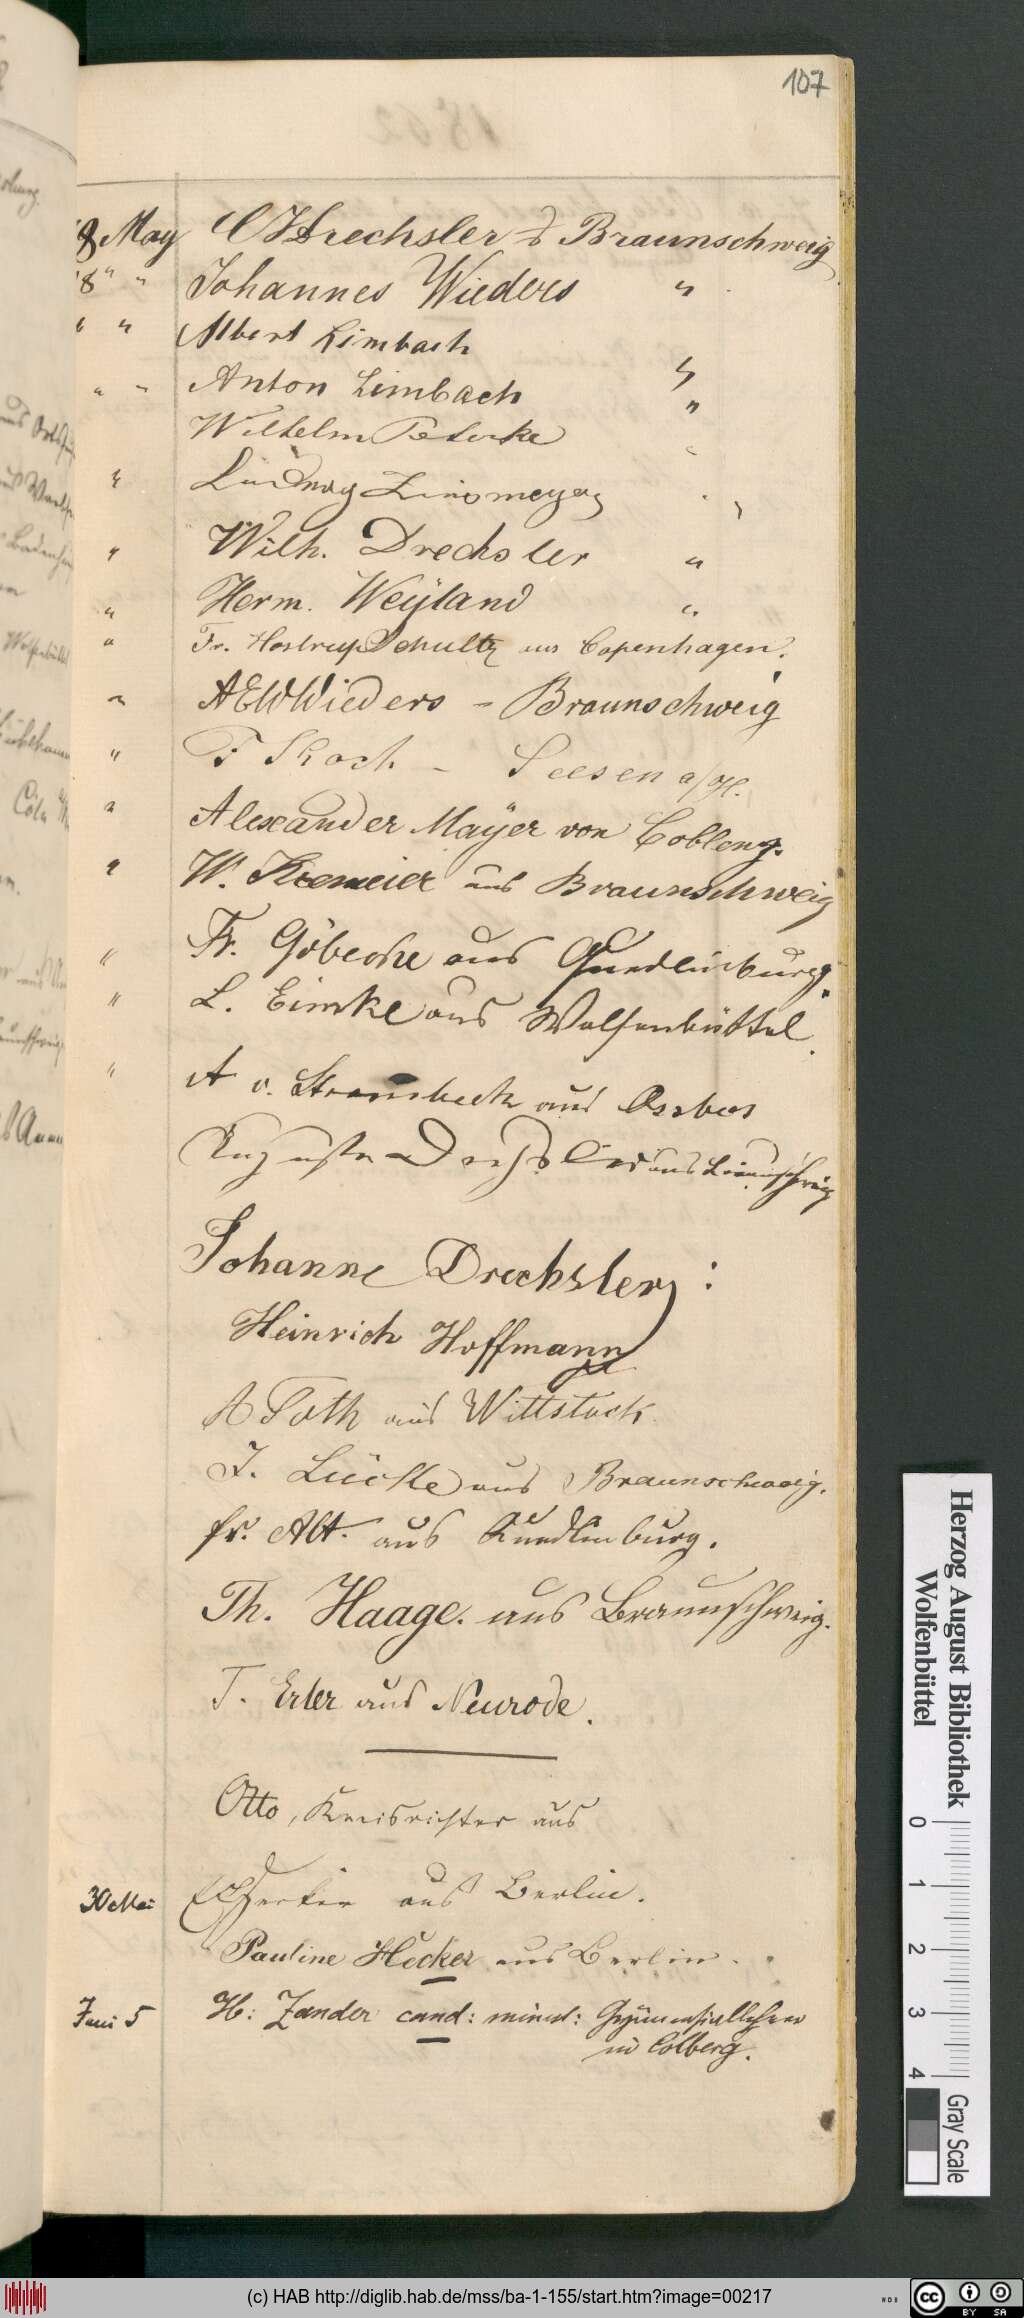 107
18 May C H Drechsler Braunschweig
18 " " Johannes Wieders "
" " Albert Limbach
" " Anton Limbach "
Wilhelm Peterke "
" Ludwig Linsmeyer "
" Wilh. Drechsler "
" Herm. Weyland "
" Fr. Hostrup Schultz aus Copenhagen.
" A E W Wieders – Braunschweig
" F Koch – Seesen a/H.
" Alexander Mayer von Coblenz.
" W. Kremeier aus Braunschweig
" Fr. Göbecke aus Quedlinburg.
" L. Eimke aus Wolfenbüttel.
" A v. Strombeck aus
Auguste Drechsler aus Braunschweig
Johanne Drechsler :
Heinrich Hoffmann
A Toth aus Wittstock.
J. Lücke aus Braunschweig.
fr. Alt. aus Quedlinburg.
Th. Haage. aus Braunschweig.
T. Erler aus Neurode.
Otto, Kreisrichter aus
30 Mai aus Berlin.
Pauline Hecker aus Berlin.
Juni 5 H: Zander cand: minist: Gymnasiallehrer
in Colberg.
Herzog August Bibliothek
Wolfenbüttel
0 1 2 3 4
Gray Scale
(c) HAB http://diglib.hab.de/mss/ba-1-155/start.htm?image=00217
cc BY SA